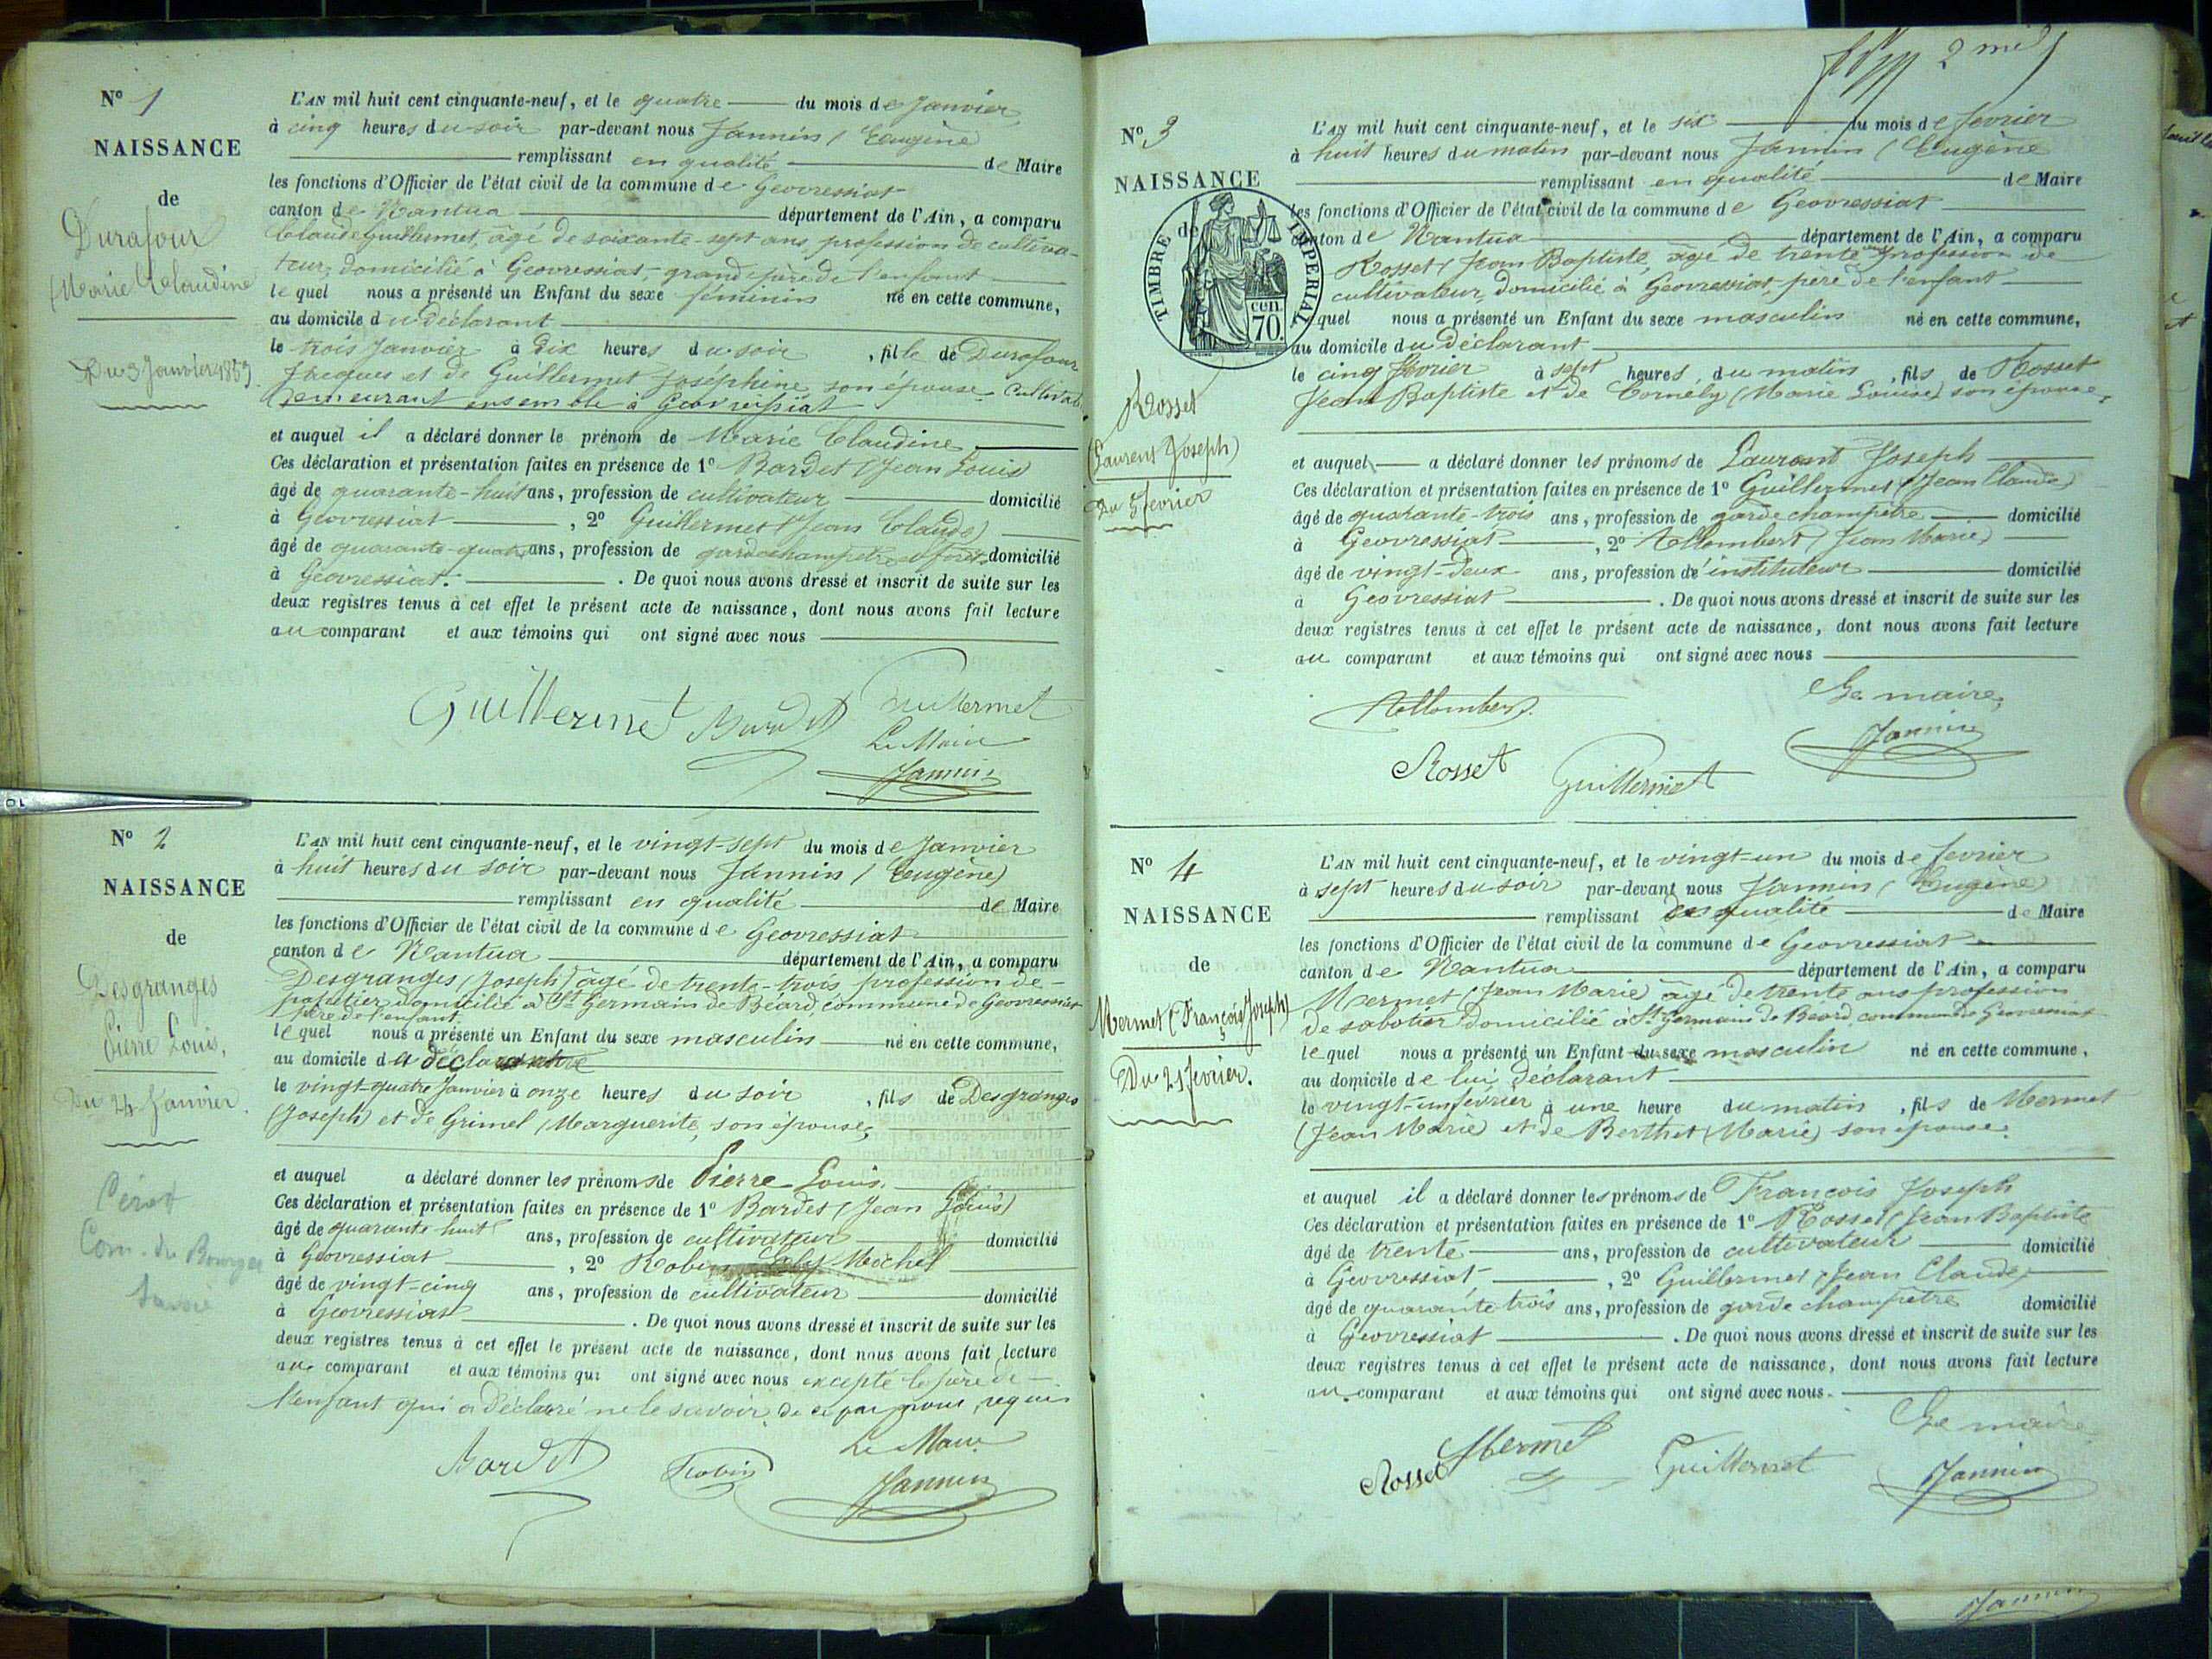 N° 1
NAISSANCE
de
Durafour
(Marie Claudine
Du 3 Janvier 1859.
L'AN mil huit cent cinquante-neuf, et le quatre du mois de Janvier
à cinq heures du soir par-devant nous Jannin (Eugène)
remplissant en qualité de Maire
les fonctions d'Officier de l'état civil de la commune de Geovressiat
canton de Nantua département de l'Ain, a comparu
Claude Guillermet, âgé de soixante-sept ans, profession de cultiva-
teur, domicilié à Geovressiat, grand-père de l'enfant
lequel nous a présenté un Enfant du sexe féminin né en cette commune,
au domicile du déclarant
le trois Janvier à dix heures du soir, fille de Durafour
Jacques et de Guillermet Joséphine son épouse Cultivat.
demeurant ensemble à Geovressiat
et auquel il a déclaré donner le prénom de Marie Claudine
Ces déclaration et présentation faites en présence de 1° Bardet (Jean Louis)
âgé de quarante-huit ans, profession de cultivateur domicilié
à Geovressiat, 2° Guillermet (Jean Claude)
âgé de quarante-quatre ans, profession de garde champetre et foret. domicilié
à Geovressiat. De quoi nous avons dressé et inscrit de suite sur les
deux registres tenus à cet effet le présent acte de naissance, dont nous avons fait lecture
au comparant et aux témoins qui ont signé avec nous
Guillermet Bardet Guillermet
Le Maire
Jannin
N° 2
NAISSANCE
de
Desgranges
Pierre Louis,
Du 24 Janvier.
Com. du Bourget
Savoie
L'AN mil huit cent cinquante-neuf, et le vingt-sept du mois de Janvier
à huit heures du soir par-devant nous Jannin (Eugène)
remplissant en qualité de Maire
les fonctions d'Officier de l'état civil de la commune de Geovressiat
canton de Nantua département de l'Ain, a comparu
Desgranges (Joseph) âgé de trente-trois profession de
domicilié à St Germain de Béard, commune de Geovressiat
père de l'enfant
lequel nous a présenté un Enfant du sexe masculin né en cette commune,
au domicile du
le vingt-quatre Janvier à onze heures du soir, fils de Desgranges
(Joseph) et de Grimel (Marguerite, son épouse,
et auquel a déclaré donner les prénoms de Pierre Louis.
Ces déclaration et présentation faites en présence de 1° Bardet (Jean Louis)
âgé de quarante huit ans, profession de cultivateur domicilié
à Geovressiat, 2° Robin Michel
âgé de vingt-cinq ans, profession de cultivateur domicilié
à Geovressiat. De quoi nous avons dressé et inscrit de suite sur les
deux registres tenus à cet effet le présent acte de naissance, dont nous avons fait lecture
au comparant et aux témoins qui ont signé avec nous excepté le père de
l'enfant qui a déclaré ne le savoir de ce par nous requis
Bardet Robin
Le Maire
Jannin
2 me
N° 3
NAISSANCE
de
TIMBRE IMPERIAL
cen
70.
Rosset
(Laurent Joseph)
Du 5 fevrier
L'AN mil huit cent cinquante-neuf, et le six du mois de fevrier
à huit heures du matin par-devant nous Jannin (Eugène
remplissant en qualité de Maire
les fonctions d'Officier de l'état civil de la commune de Geovressiat
canton de Nantua département de l'Ain, a comparu
Rosset (Jean Baptiste, âgé de trente ans profession de
cultivateur, domicilié à Geovressiat, père de l'enfant
lequel nous a présenté un Enfant du sexe masculin né en cette commune,
au domicile du déclarant
le cinq février à sept heures du matin, fils de Rosset
Jean Baptiste et de Cornély (Marie Louise) son épouse,
et auquel a déclaré donner les prénoms de Laurent Joseph
Ces déclaration et présentation faites en présence de 1° Guillermet (Jean Claude)
âgé de quarante-trois ans, profession de garde champêtre domicilié
à Geovressiat, 2° Allombert (Jean Marie)
âgé de vingt-deux ans, profession d'instituteur domicilié
à Geovressiat. De quoi nous avons dressé et inscrit de suite sur les
deux registres tenus à cet effet le présent acte de naissance, dont nous avons fait lecture
au comparant et aux témoins qui ont signé avec nous
Allombert.
Le maire,
Jannin
Rosset Guillermet
N° 4
NAISSANCE
de
Mermet (François Joseph)
Du 21 fevrier.
L'AN mil huit cent cinquante-neuf, et le vingt-un du mois de fevrier
à sept heures du soir par-devant nous Jannin (Eugène)
remplissant en qualité de Maire
les fonctions d'Officier de l'état civil de la commune de Geovressiat
canton de Nantua département de l'Ain, a comparu
Mermet (Jean Marie) âgé de trente ans profession
de sabotier domicilié à St Germain de Béard, commune de Geovressiat
lequel nous a présenté un Enfant du sexe masculin né en cette commune,
au domicile de lui déclarant
le vingt-un février à une heure du matin, fils de Mermet
(Jean Marie) et de Berthet (Marie) son épouse.
et auquel il a déclaré donner les prénoms de François Joseph
Ces déclaration et présentation faites en présence de 1° Rosset (Jean Baptiste
âgé de trente ans, profession de cultivateur domicilié
à Geovressiat, 2° Guillermet (Jean Claude)
âgé de quarante trois ans, profession de garde champêtre domicilié
à Geovressiat. De quoi nous avons dressé et inscrit de suite sur les
deux registres tenus à cet effet le présent acte de naissance, dont nous avons fait lecture
au comparant et aux témoins qui ont signé avec nous.
Le maire
Rosset Mermet Guillermet Jannin
Jannin